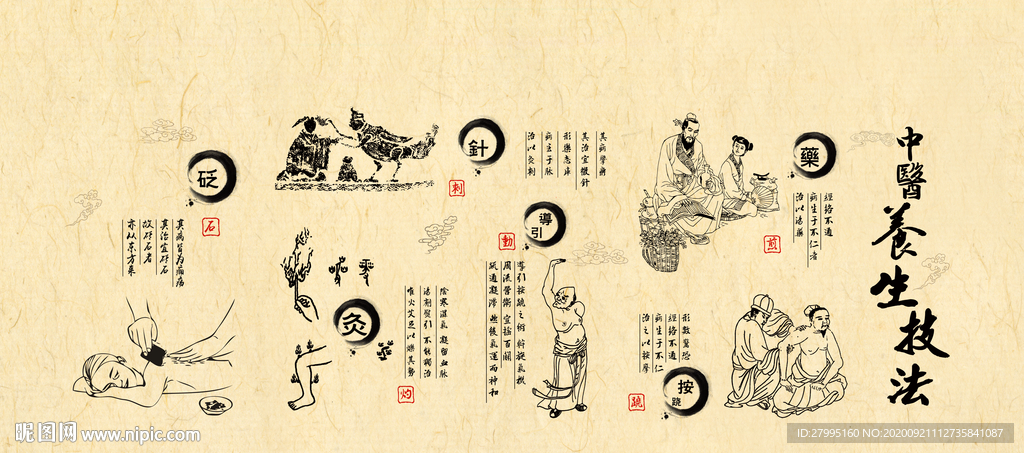 中醫養生技法
藥
煎
經絡不通
病生于不仁者
治以湯藥
按
蹺
蹺
形數驚恐
經絡不通
病生于不仁
治之以按摩
針
刺
其病攣痹
其治宜微針
形樂志苦
病生于脉
治以灸刺
導
引
動
導引按蹺之術
周流營衛 宣摇百關
疏通凝滯 然後氣運而神和
灸
灼
陰寒濕氣 凝留血脉
湯劑熨引 不能獨治
唯火艾足以爍其勢
砭
石
其病皆為癰瘍
其治宜砭石
故砭石者
亦从東方来
昵图网 www.nipic.com
ID:27995160 NO:20200921112735841087